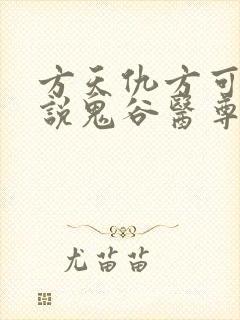 方天仇方可
說鬼谷醫尊
尤苗苗